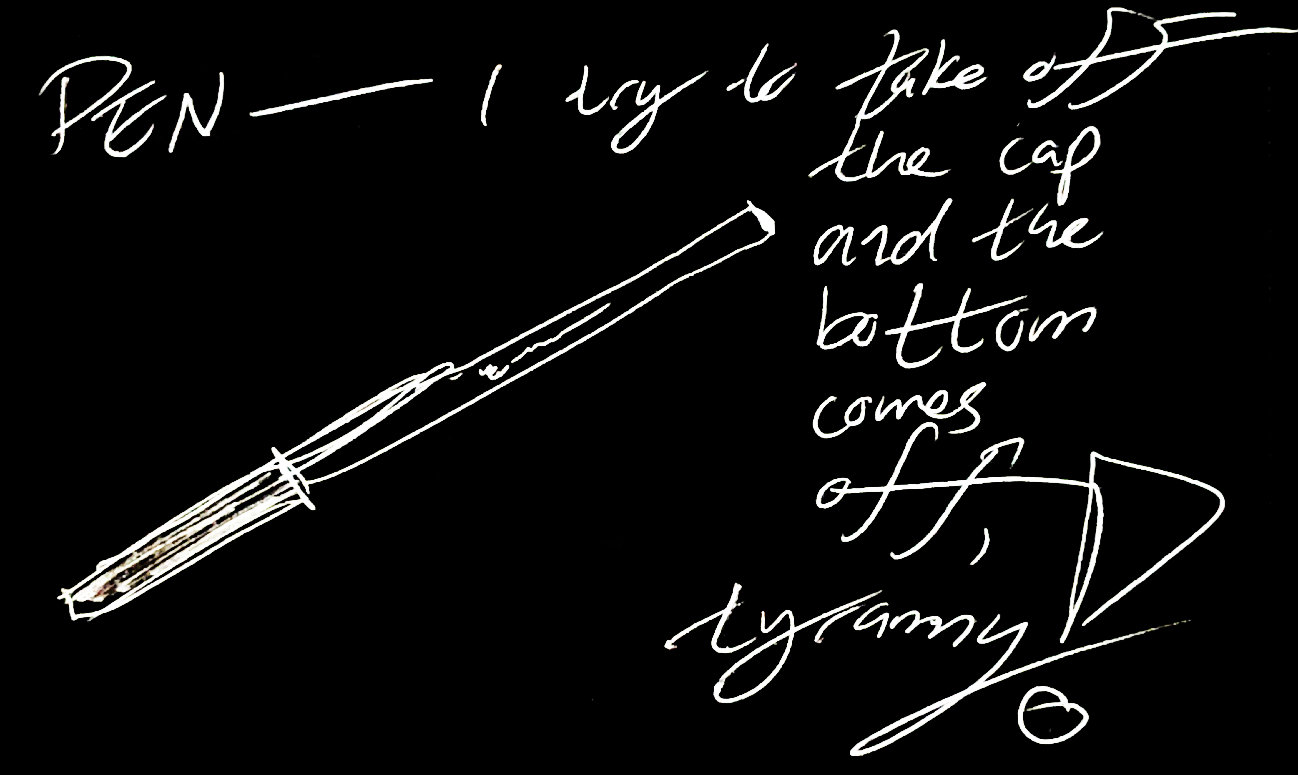 PEN — I try to take off
the cap
and the
bottom
comes
off,
tyranny!